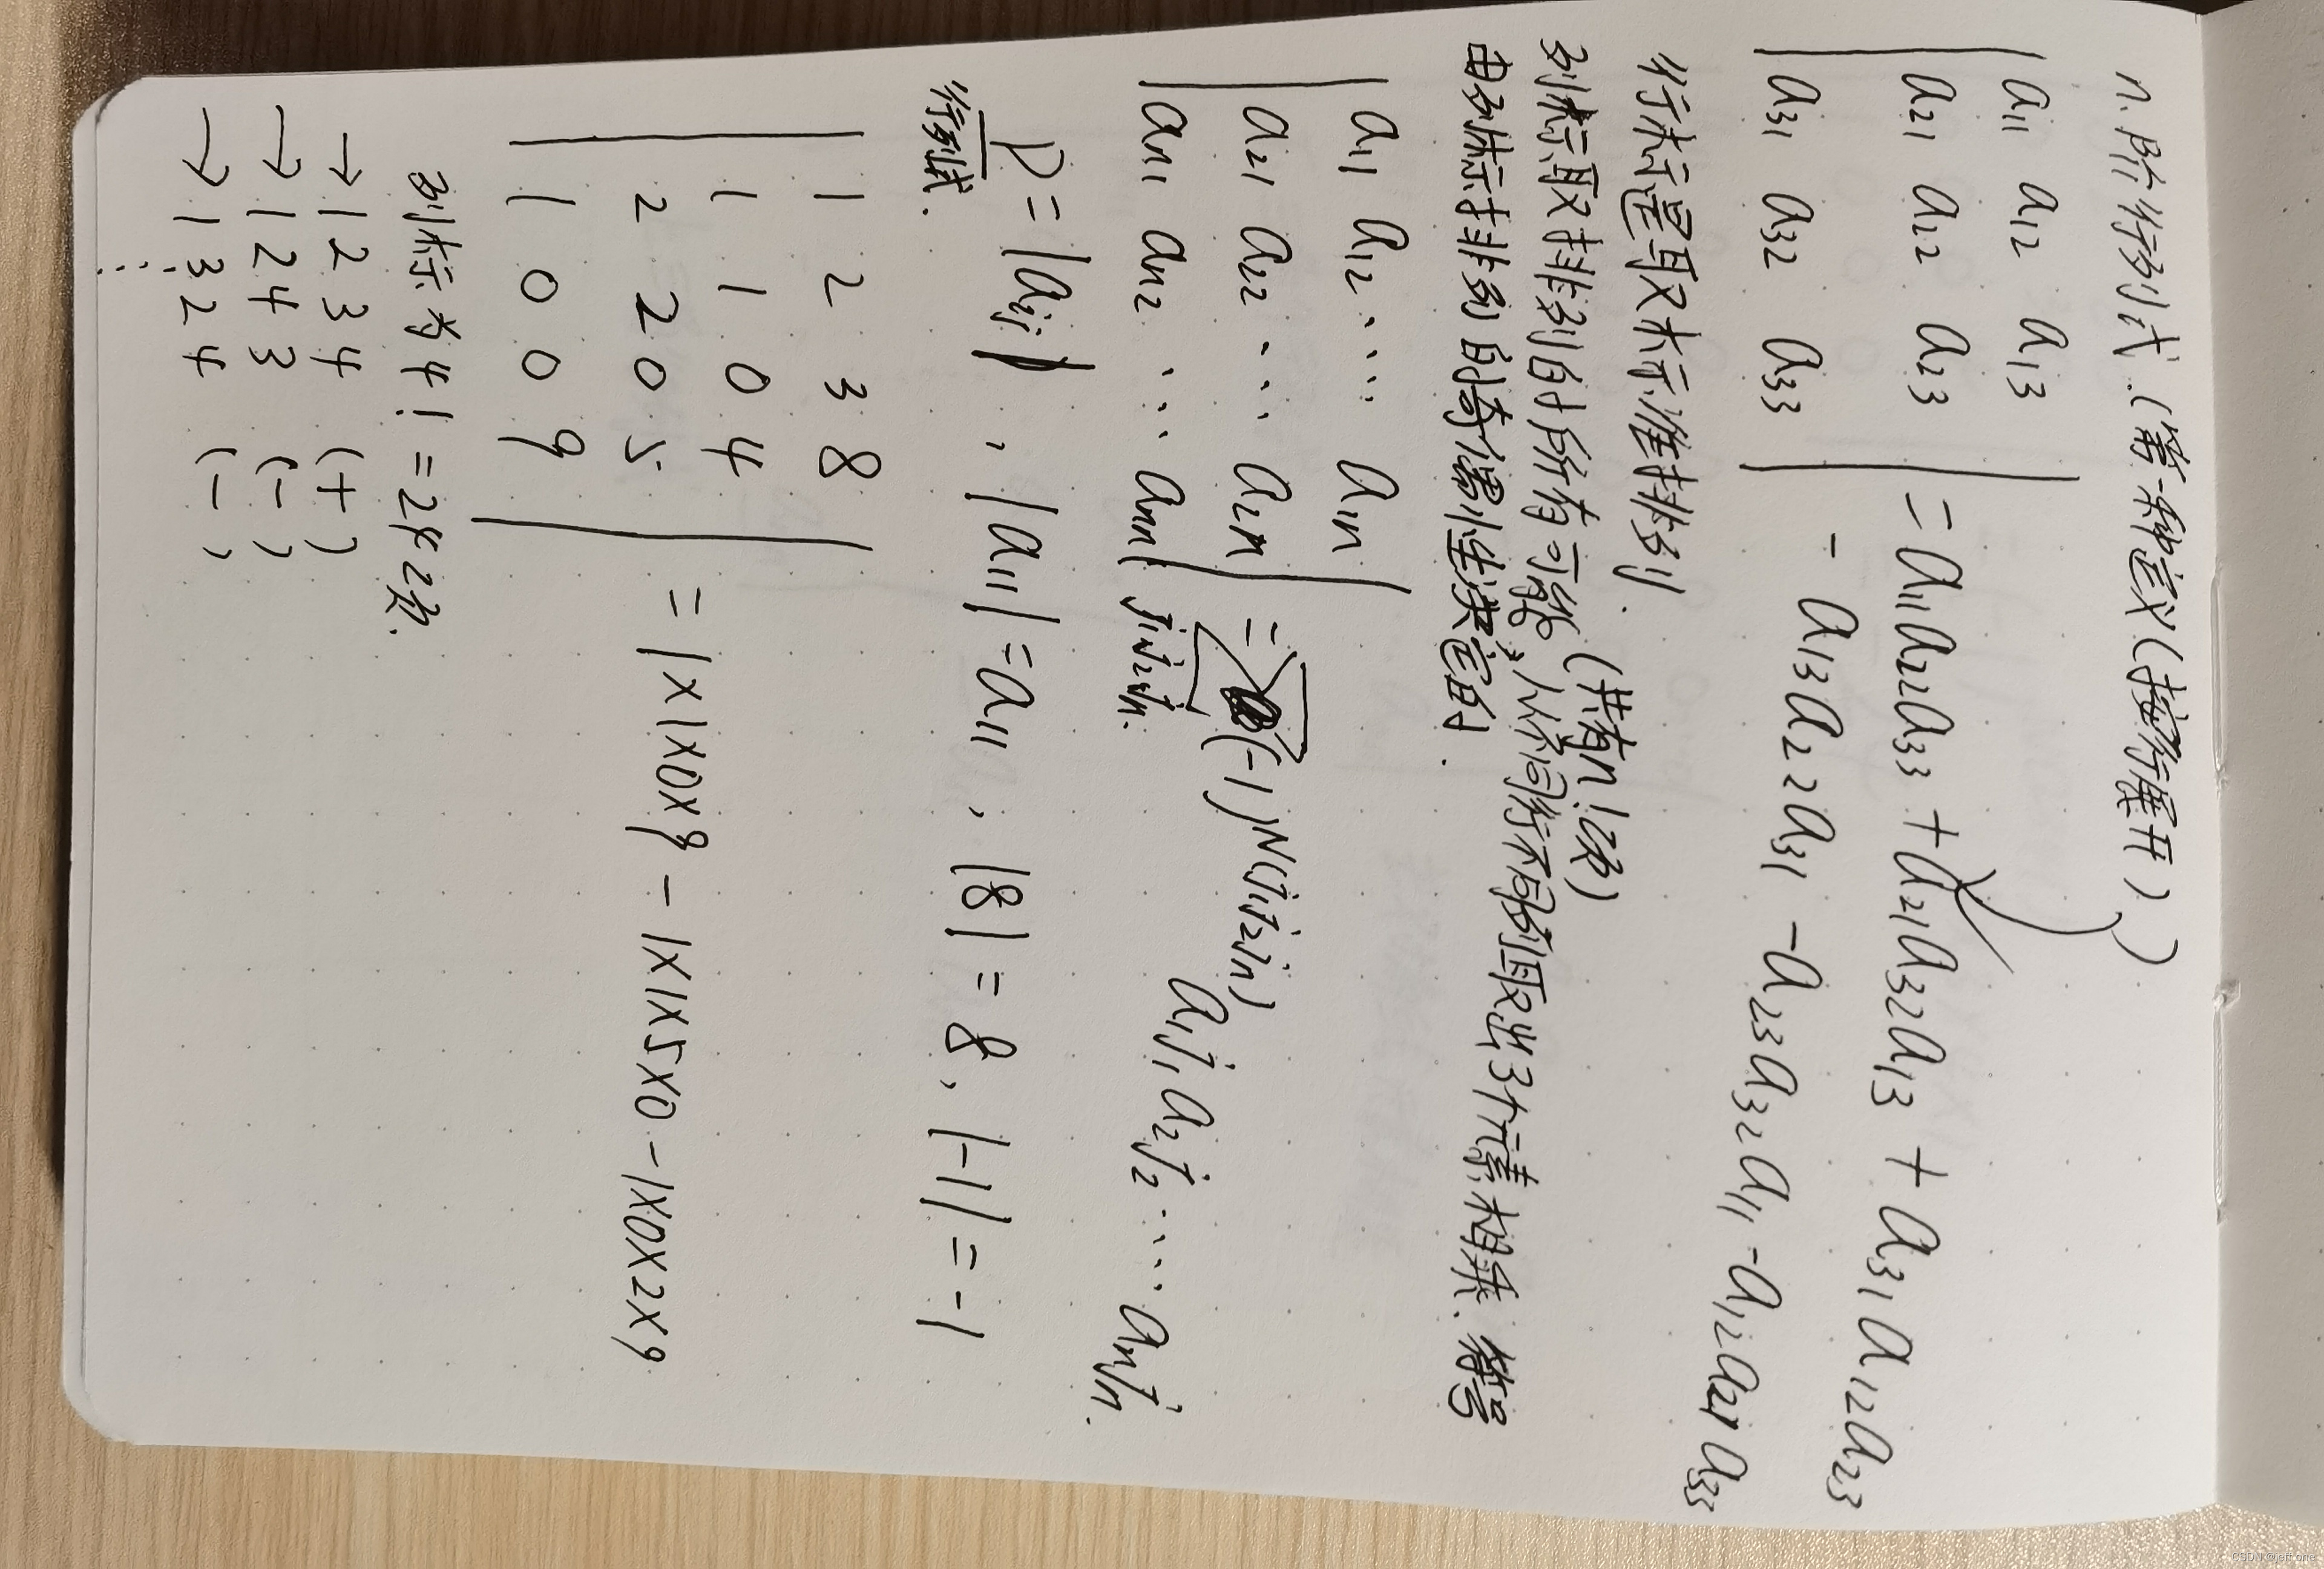 n阶行列式.(第一种定义(按行展开))
| a11 a12 a13 |
| a21 a22 a23 | = a11a22a33 + a21a32a13 + a31a12a23
| a31 a32 a33 | - a13a22a31 - a23a32a11 - a12a21a33
行标是取标准排列.
列标取排列的所有可能(共有n!项),从不同行不同列取出3个元素相乘.符号
由列标排列的奇偶性决定的.
| a11 a12 ... a1n |
| a21 a22 ... a2n | = Σ (-1)^N(j1j2jn) a1j1a2j2...anjn.
| an1 an2 ... ann | j1j2jn.
D = |aij| , |a11| = a11 , |8| = 8 , |-1| = -1
行列式.
| 1 2 3 8 |
| 1 1 0 4 |
| 2 2 0 5 | = 1×1×0×9 - 1×1×5×0 - 1×0×2×9
| 1 0 0 9 |
列标为4! = 24项.
→ 1 2 3 4 (+)
→ 1 2 4 3 (-)
→ 1 3 2 4 (-)
CSDN @jeff one